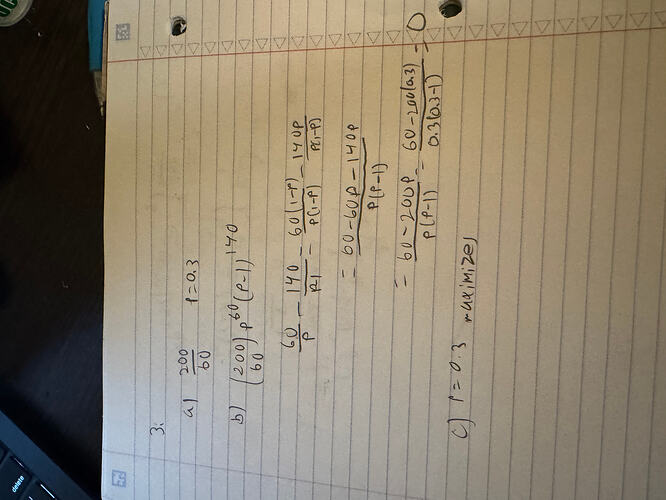 3:
a) 200/60 P=0.3
b) (200 60) p^60 (p-1)^140
60/p - 140/p-1 = 60(1-p)/p(1-p) - 140p/p(1-p)
= 60-60p-140p/p(p-1)
= 60-200p/p(p-1) = 60-200(0.3)/0.3(0.3-1) = 0
c) P=0.3 maximizes
delete